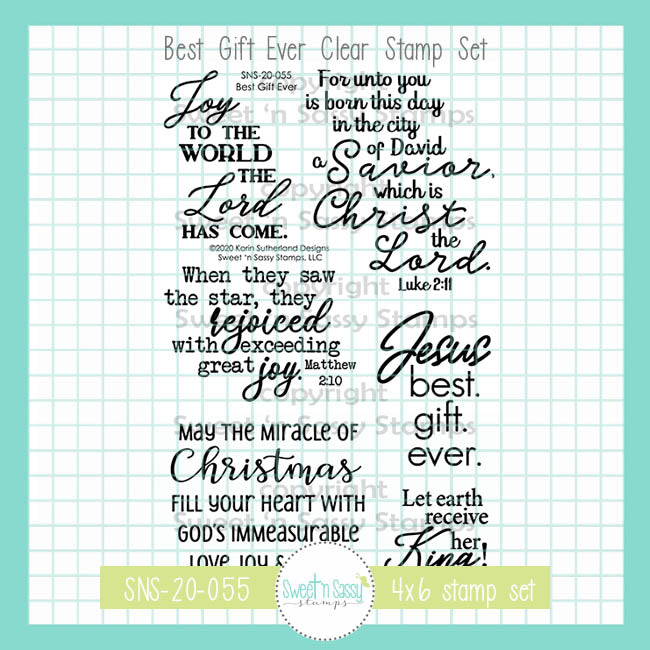 Best Gift Ever Clear Stamp Set
SNS-20-055
Best Gift Ever
Joy
TO THE
WORLD
THE
Lord
HAS COME.
©2020 Korin Sutherland Designs
Sweet 'n Sassy Stamps, LLC
For unto you
is born this day
in the city
of David
a Savior,
which is
Christ
the
Lord.
Luke 2:11
When they saw
the star, they
rejoiced
with exceeding
great joy.
Matthew
2:10
Jesus
best.
gift.
ever.
May the miracle of
Christmas
fill your heart with
God's immeasurable
love, joy &
Let earth
receive
her
King!
copyright
Sweet 'n Sassy Stamps
copyright
Sweet 'n Sassy Stamps
copyright
Sweet 'n Sassy Stamps
copyright
Sweet 'n Sassy Stamps
copyright
Sweet 'n Sassy Stamps
SNS-20-055
Sweet 'n Sassy
stamps
4x6 stamp set